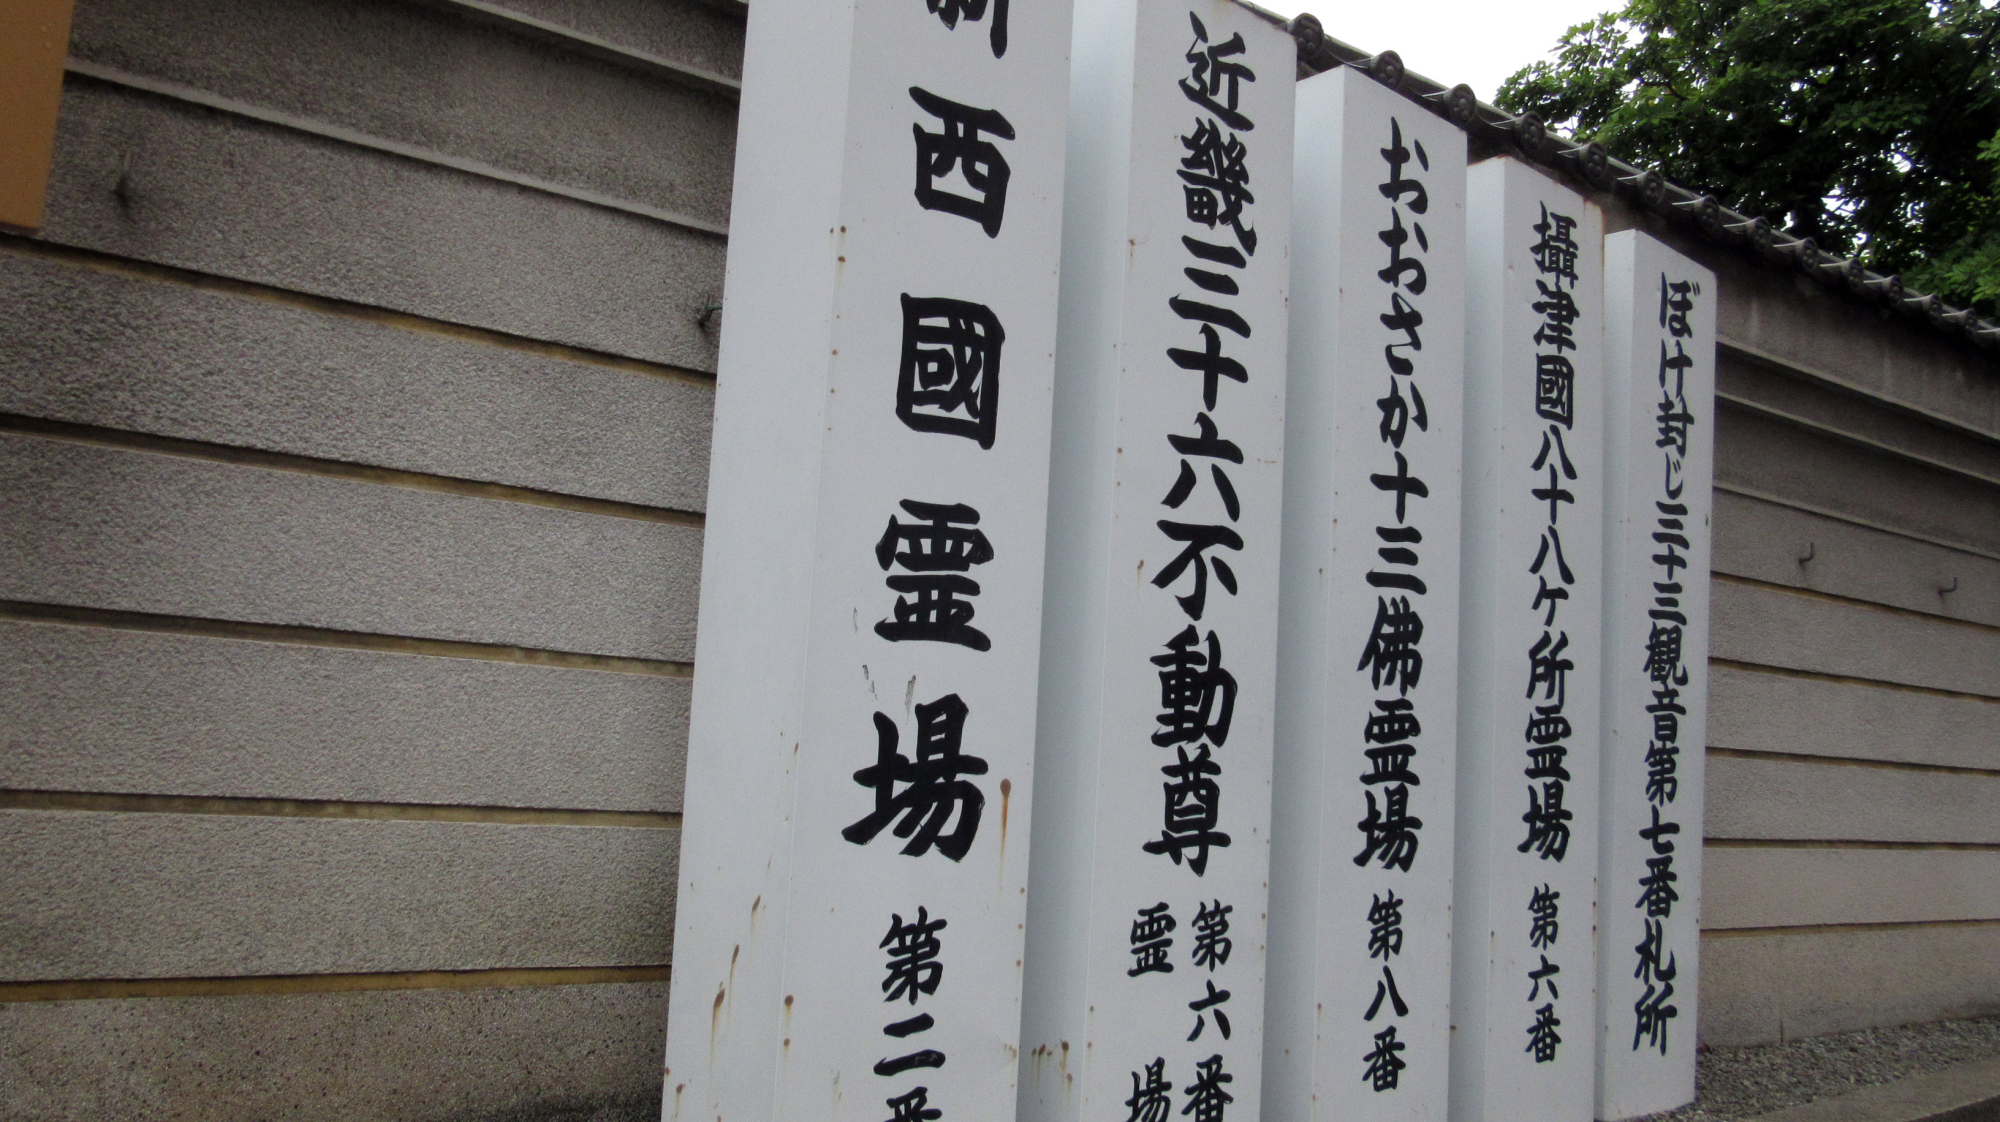 新西國霊場 第二番
近畿三十六不動尊 第六番
霊場
おおさか十三佛霊場 第八番
攝津國八十八ケ所霊場 第六番
ぼけ封じ三十三観音第七番札所